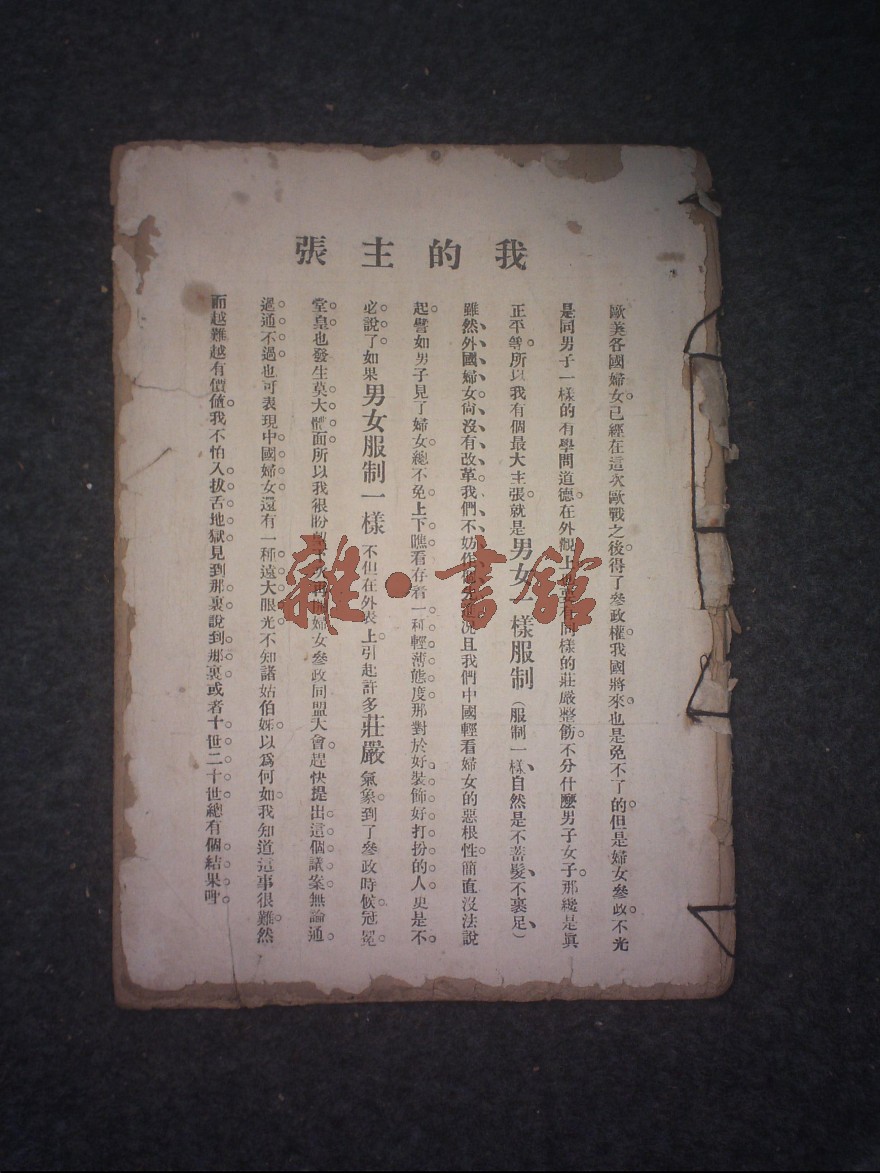 我的主張
歐美各國婦女。已經在這次歐戰之後。得了參政權。我國將來。也是免不了的。但是婦女參政。不光
是同男子一樣的有學問道德。在外觀上也要有同樣的莊嚴整飭。不分什麼男子女子。那纔是眞
正平等。所以我有個最大主張。就是男女一樣服制（服制一樣、自然是不蓄髮、不裹足、）
雖然、外國婦女、尙沒有改革。我們不妨 況且我們中國輕看婦女的惡根性。簡直沒法說
起。譬如男子見了婦女。總不免上下瞧看。存着一種輕薄態度。那對於好裝飾好打扮的人。更是不
必說了。如果男女服制一樣 不但在外表上引起許多莊嚴氣象。到了參政時候。冠冕
堂皇。也發生莫大體面。所以我很盼望 婦女參政同盟大會。趕快提出這個議案。無論通
過通不過。也可表現中國婦女。還有一種遠大眼光。不知諸姑伯姊。以爲何如。我知道這事很難。然
而越難越有價値。我不怕入拔舌地獄。見到那裏。說到那裏。或者十世二十世。總有個結果呵
雜·書館